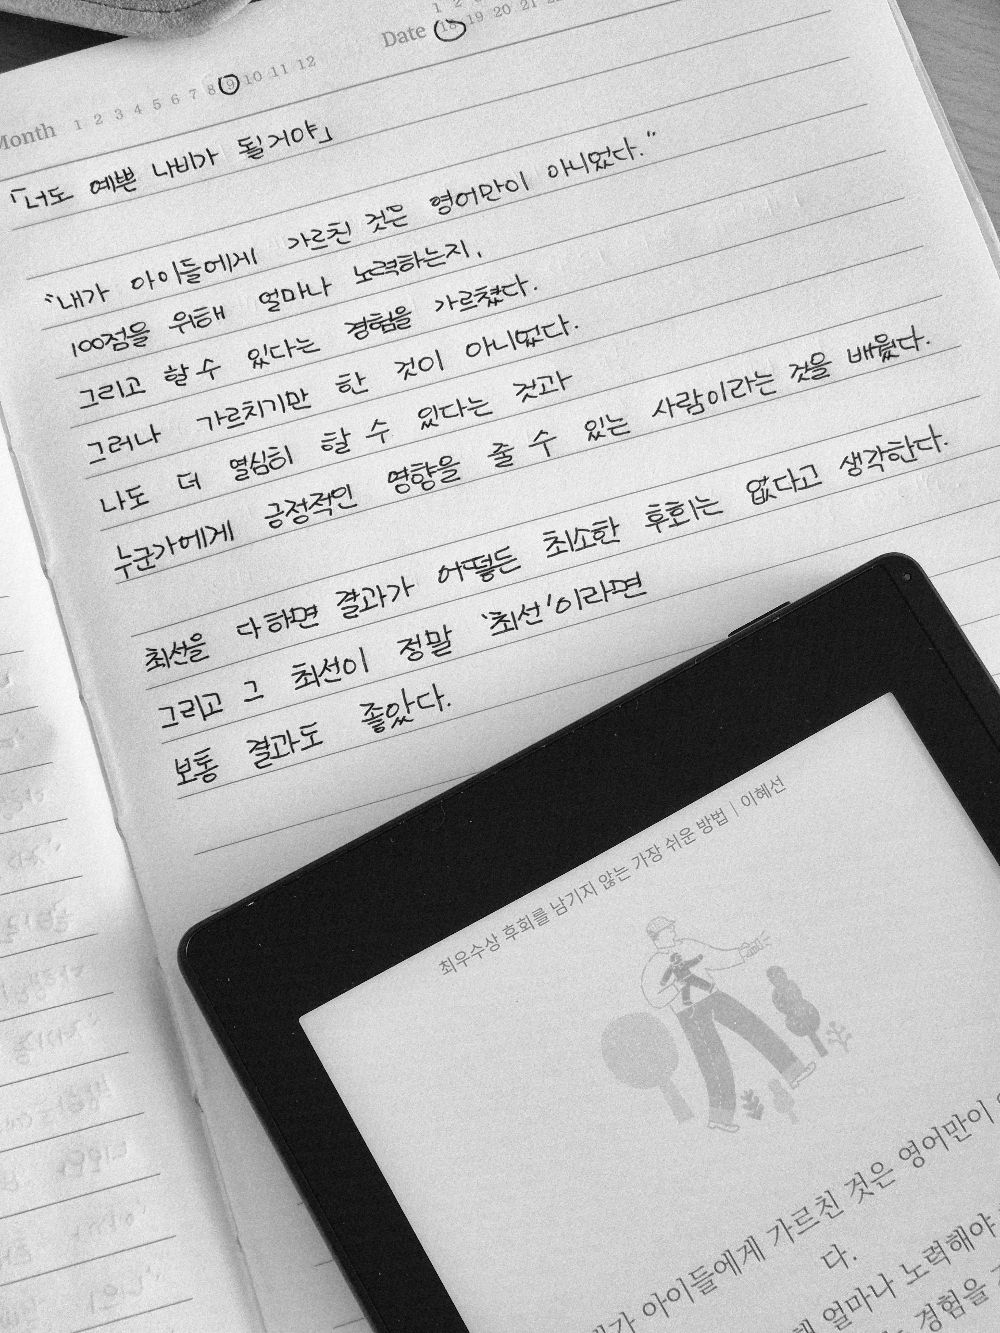 Month 1 2 3 4 5 6 7 8 9 10 11 12
Date 1 2
18 19 20 21
「너도 예쁜 나비가 될거야」
“내가 아이들에게 가르친 것은 영어만이 아니었다.”
100점을 위해 얼마나 노력하는지,
그리고 할 수 있다는 경험을 가르쳤다.
그러나 가르치기만 한 것이 아니었다.
나도 더 열심히 할 수 있다는 것과
누군가에게 긍정적인 영향을 줄 수 있는 사람이라는 것을 배웠다.
최선을 다하면 결과가 어떻든 최소한 후회는 없다고 생각한다.
그리고 그 최선이 정말 ‘최선’이라면
보통 결과도 좋았다.
최우수상 후회를 남기지 않는 가장 쉬운 방법 | 이혜선
아이들에게 가르친 것은 영어만이
다.
얼마나 노력해야
경험을